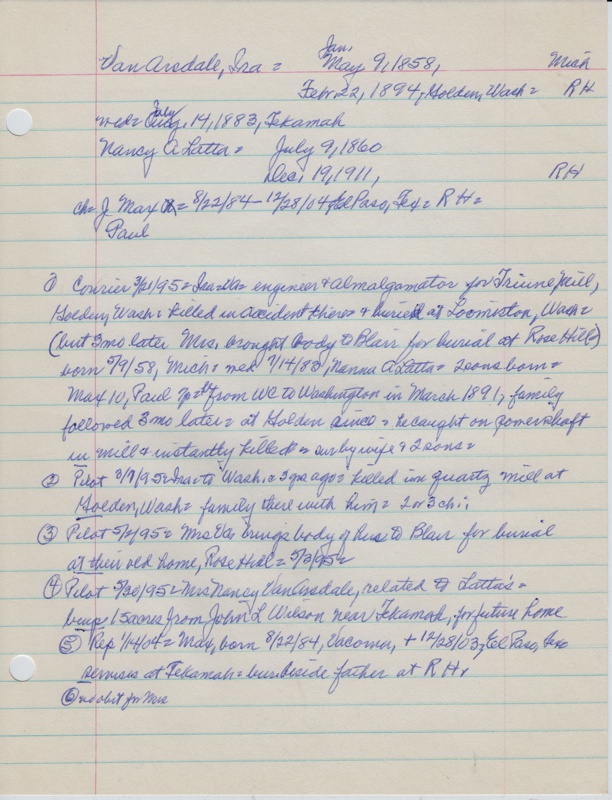 Jan.
Van Arsdale, Ira = May 9, 1858, Mich
Feb. 22, 1894, Golden, Wash = R H
July
wed = Aug. 14, 1883, Tekamah
Nancy A Latta = July 9, 1860
Dec. 19, 1911, R H
ch = J. Max = 8/22/84 - 12/28/04, El Paso, Tex = R H =
Paul
① Courier 3/21/95 = Ira = Va = engineer & almalgamator for Triune Mill,
Golden, Wash = killed in accident there = & buried at Loomiston, Wash =
(but 3 mo later Mrs. brought body to Blair for burial at Rose Hill)
born 5/9/58, Mich = wed 7/14/83, Nanna A Latta = 2 sons born =
Max 10, Paul 7 = left from WC to Washington in March 1891, family
followed 3 mo later = at Golden since = he caught on powershaft
in mill & instantly killed = sur by wife & 2 sons =
② Pilot = Ira = to Wash. = 3 yrs ago = killed in quartz mill at
Golden, Wash = family there with him = 2 or 3 ch;
③ Pilot = Mrs Va brings body of hus to Blair for burial
at their old home, Rose Hill = 5/3/95 =
④ Pilot 5/30/95 = Mrs Nancy VanArsdale, related to Latta's =
buys 15 acres from John L Wilson near Tekamah, for future home
⑤ Rep 1/14/04 = Max, born 8/22/84, Vacoma, + 12/28/03, El Paso, Tex
services at Tekamah = bur. beside father at R H,
⑥ no obit for Mrs